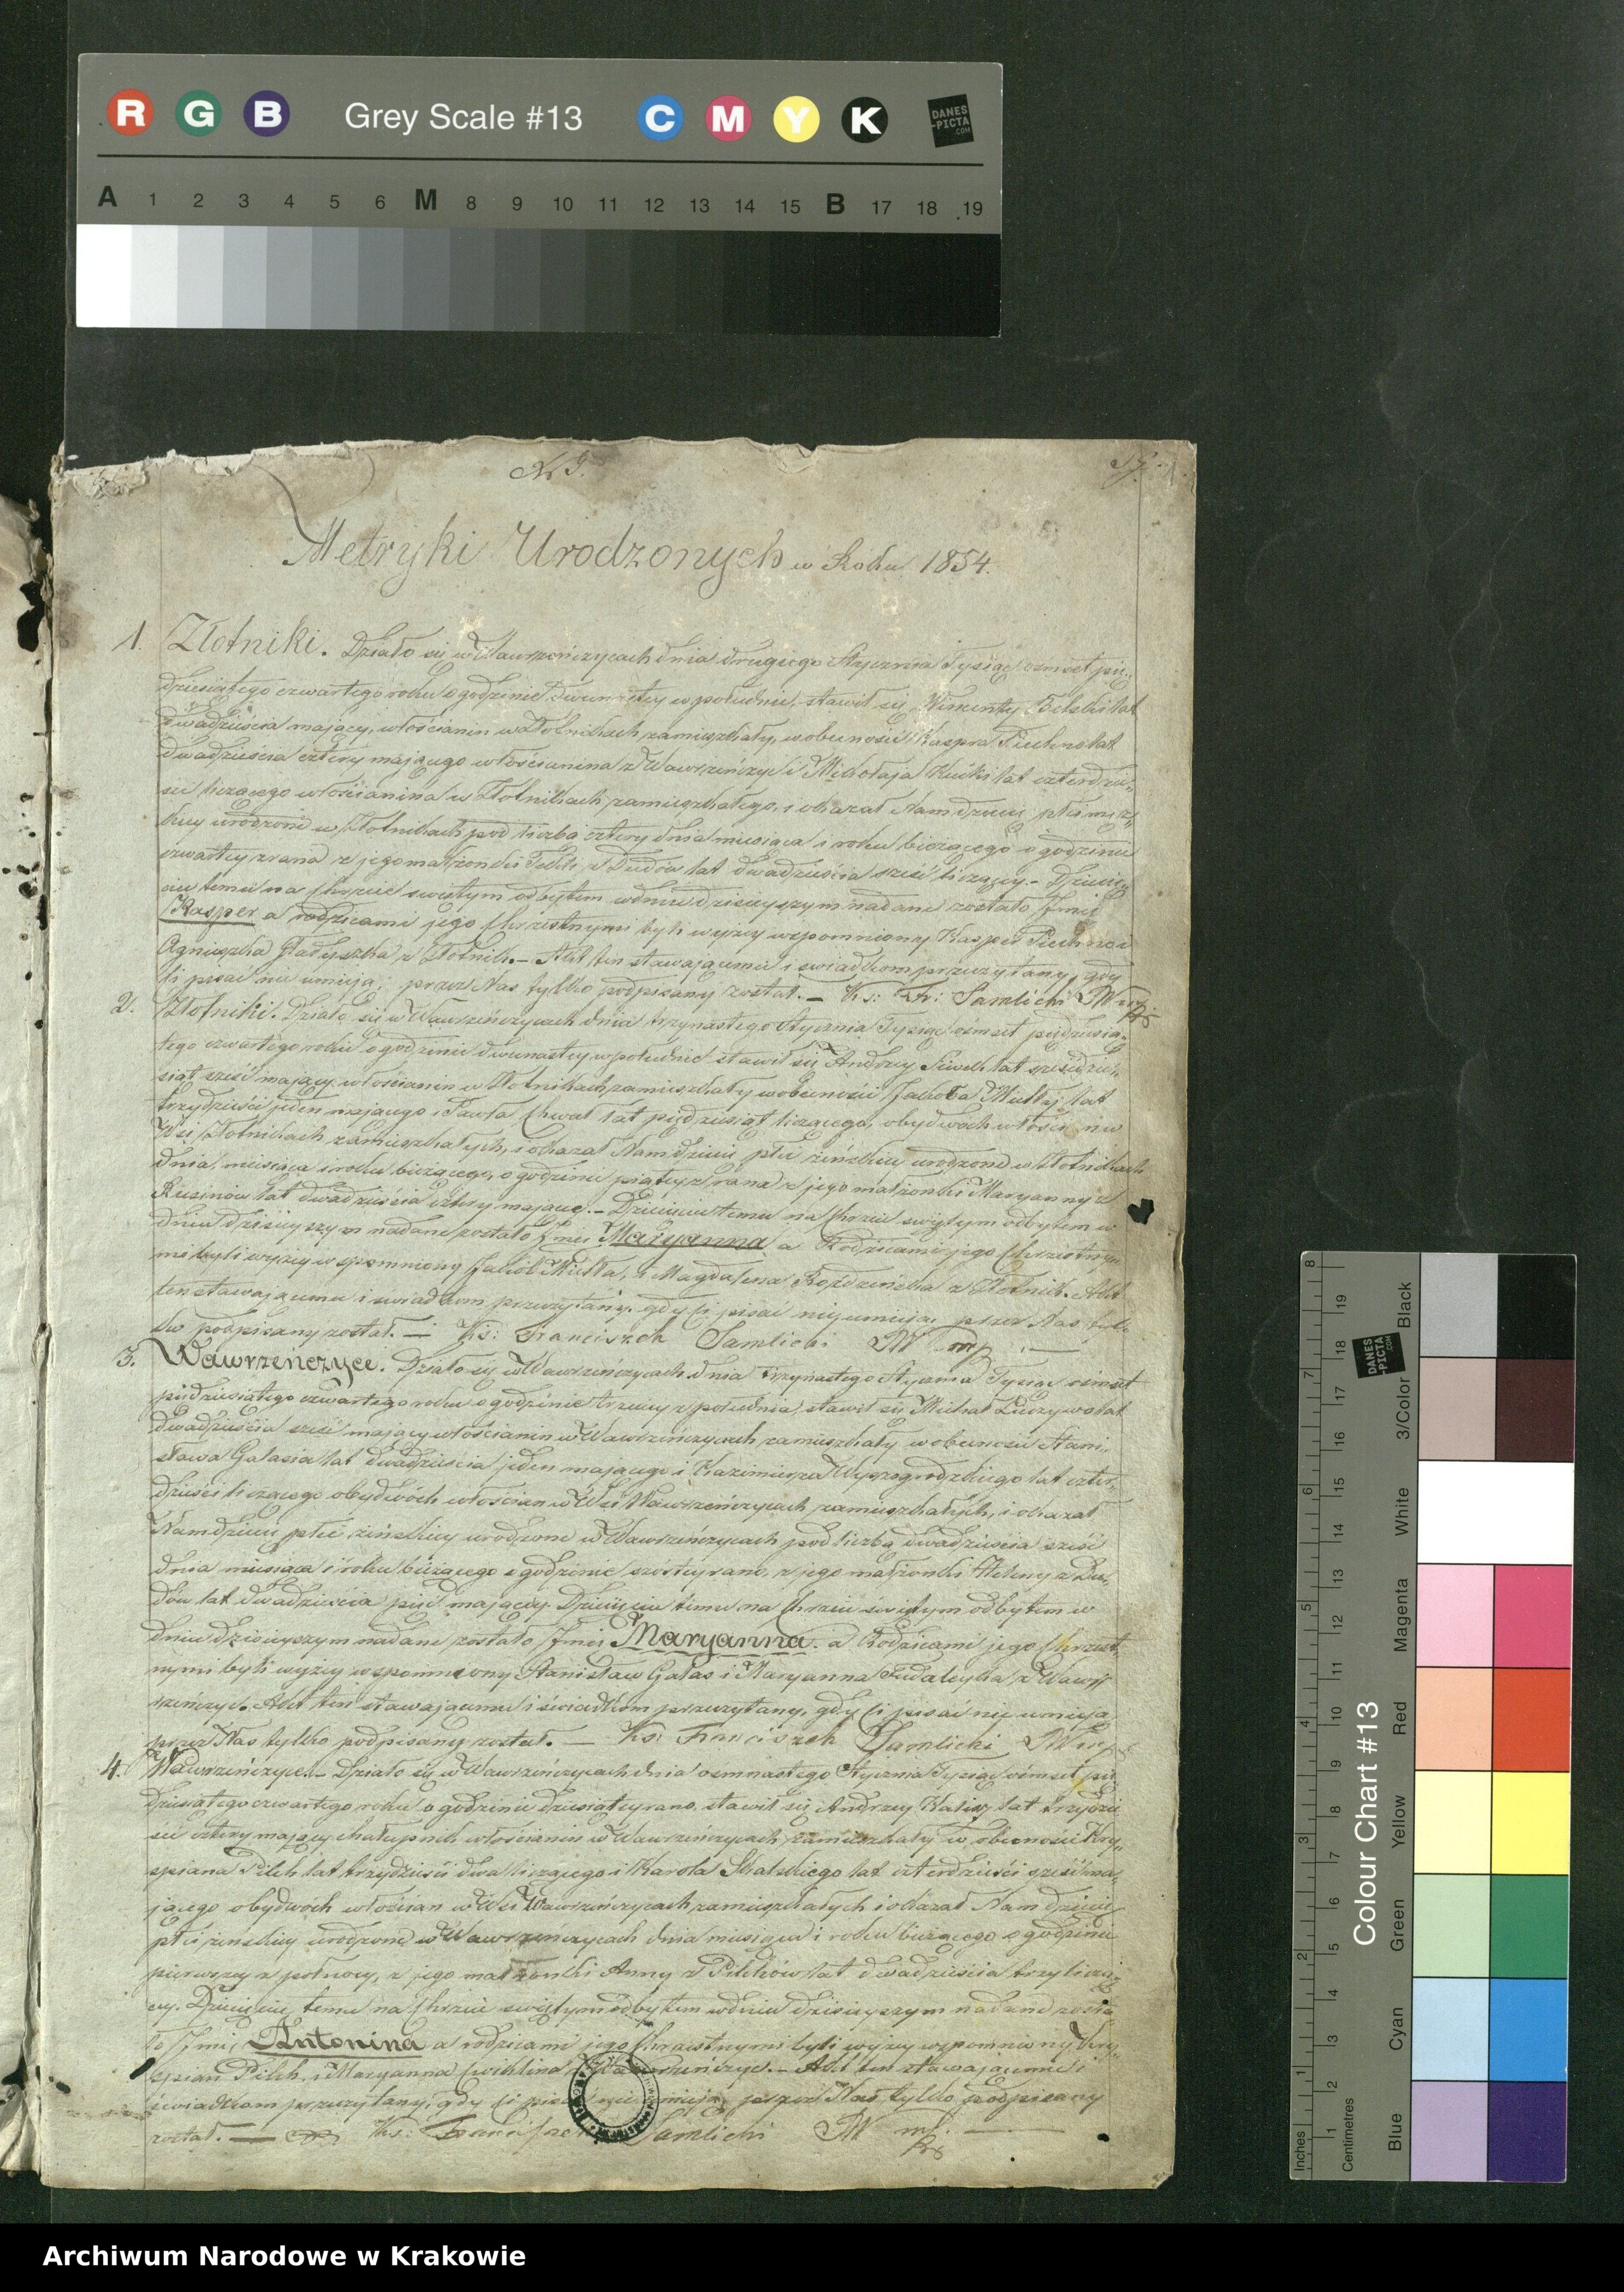 R G B Grey Scale #13 C M Y K DANES -PICTA .COM
A 1 2 3 4 5 6 M 8 9 10 11 12 13 14 15 B 17 18 19
Metryki Urodzonych w Roku 1854.
1. Złotniki. Działo się w Wawrzeńczycach dnia drugiego Stycznia Tysiąc osmset pię-
dziesiątego czwartego roku o godzinie dwunastey w południe, stawił się Wincenty lat
dwadzieścia mający, włościanin w Złotnikach zamieszkały, w obecności Kaspra Piechno lat
dwadzieścia cztery mającego włościanina z Wawrzeńczyc i Mikołaja lat czterdzie-
ści liczącego włościanina w Złotnikach zamieszkałego, i okazał Nam dziecię płci męz-
kiey urodzone w Złotnikach pod liczbą cztery dnia miesiąca i roku bieżącego o godzinie
czwartey zrana z jego małżonki Tekli z Dudów lat dwadzieścia sześć liczącey. - Dziecię-
ciu temu na Chrzcie swiętym odbytem w dniu dzisieyszym nadane zostało Imie
Kasper a rodzicami jego Chrzestnymi byli wyzey wspomniony Kasper Piechno i
Agnieszka Gładyszka z Złotnik. - Akt ten stawającemu i swiadkom przeczytany, gdy
ci pisać nie umieją, przez Nas tylko podpisany został. - Ks: Fr: Samlicki
2. Złotniki. Działo się w Wawrzeńczycach dnia trzynastego Stycznia Tysiąc osmset pięćdziesią-
tego czwartego roku o godzinie dwunastey w południe stawił się Andrzey lat sześćdzie-
siąt sześć mający, włościanin w Złotnikach zamieszkały w obecności Jakóba lat
trzydzieści jeden mającego i Pawła Chwał lat pięćdziesiąt liczącego, obydwoch włościan we
Wsi Złotnikach zamieszkałych, i okazał Nam dziecię płci żeńskiey urodzone w Złotnikach
dnia, miesiąca i roku bieżącego, o godzinie piątey z rana z jego małżonki Maryanny z
Rusinów lat dwadzieścia cztery mającey. - Dziecięciu temu na Chrzcie swiętym odbytem w
dniu dzisieyszym nadane zostało Imie Maryanna a Rodzicami jego Chrzestny-
mi byli wyzey wspomniony Jakób i Magdalena z Złotnik. Akt
ten stawającemu i swiadkom przeczytany, gdy ci pisać nieumieją, przez Nas tyl-
ko podpisany został. - Ks: Franciszek Samlicki
3. Wawrzeńczyce. Działo się w Wawrzeńczycach dnia trzynastego Stycznia Tysiąc osmset
pięćdziesiątego czwartego roku o godzinie trzeciey z południa, stawił się Michał Łuczywo lat
dwadzieścia sześć mający włościanin w Wawrzeńczycach zamieszkały w obecności Stani-
sława Galasia lat dwadzieścia jeden mającego i Kazimierza Wyszogrodzkiego lat czter-
dzieści liczącego obydwóch włościan w Wsi Wawrzeńczycach zamieszkałych, i okazał
Nam dziecię płci żeńskiey urodzone w Wawrzeńczycach pod liczbą dwadzieścia sześć
dnia miesiąca i roku bieżącego o godzinie szóstey rano, z jego małżonki Heleny z Du-
dów lat dwadzieścia pięć mającey. Dziecięciu temu na Chrzcie świętym odbytem w
dniu dzisieyszym nadane zostało Imie Maryanna. a Rodzicami jego Chrzest-
nymi byli wyżey wspomniony Stanisław Galas i Maryanna z Wawrz-
szeńczyc. Akt ten stawającemu i świadkom przeczytany, gdy ci pisać nie umieją
przez Nas tylko podpisany został. - Ks: Franciszek Samlicki
4. Wawrzeńczyce. - Działo się w Wawrzeńczycach dnia osmnastego Stycznia Tysiąc osmset pię-
dziesiątego czwartego roku o godzinie dziesiątey rano, stawił się Andrzey Kalisz lat trzydzie-
ści cztery mający chałupnik włościanin w Wawrzeńczycach zamieszkały w obecności Kry-
spiana Pilch lat trzydzieści dwa liczącego i Karola Skalskiego lat czterdzieści sześć ma-
jącego obydwóch włościan w Wsi Wawrzeńczycach zamieszkałych i okazał Nam dziecię
płci żenskiey urodzone w Wawrzeńczycach dnia miesiąca i roku bieżącego o godzinie
pierwszey z północy, z jego małżonki Anny z Pilchów lat dwadzieścia trzy liczą-
cey. Dziecięciu temu na Chrzcie swiętym odbytem w dniu dzisieyszym nadane zosta-
ło Imie Antonina a rodzicami jego Chrzestnymi byli wyżey wspomniony Kry-
spian Pilch, i Maryanna z Wawrzeńczyc. - Akt ten stawającemu i
świadkom przeczytany, gdy ci pisać nie umieją, przez Nas tylko podpisany
został. - Ks: Franciszek Samlicki
Colour Chart #13
Blue Cyan Green Yellow Red Magenta White 3/Color Black
Inches 1 2 3 4 5 6 7 8
Centimetres 1 2 3 4 5 6 7 8 9 10 11 12 13 14 15 16 17 18 19
DANES -PICTA .COM
Archiwum Narodowe w Krakowie